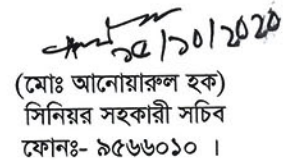 ১৫/১০/২০২০
(মোঃ আনোয়ারুল হক)
সিনিয়র সহকারী সচিব
ফোনঃ- ৯৫৬৬০১০ ।